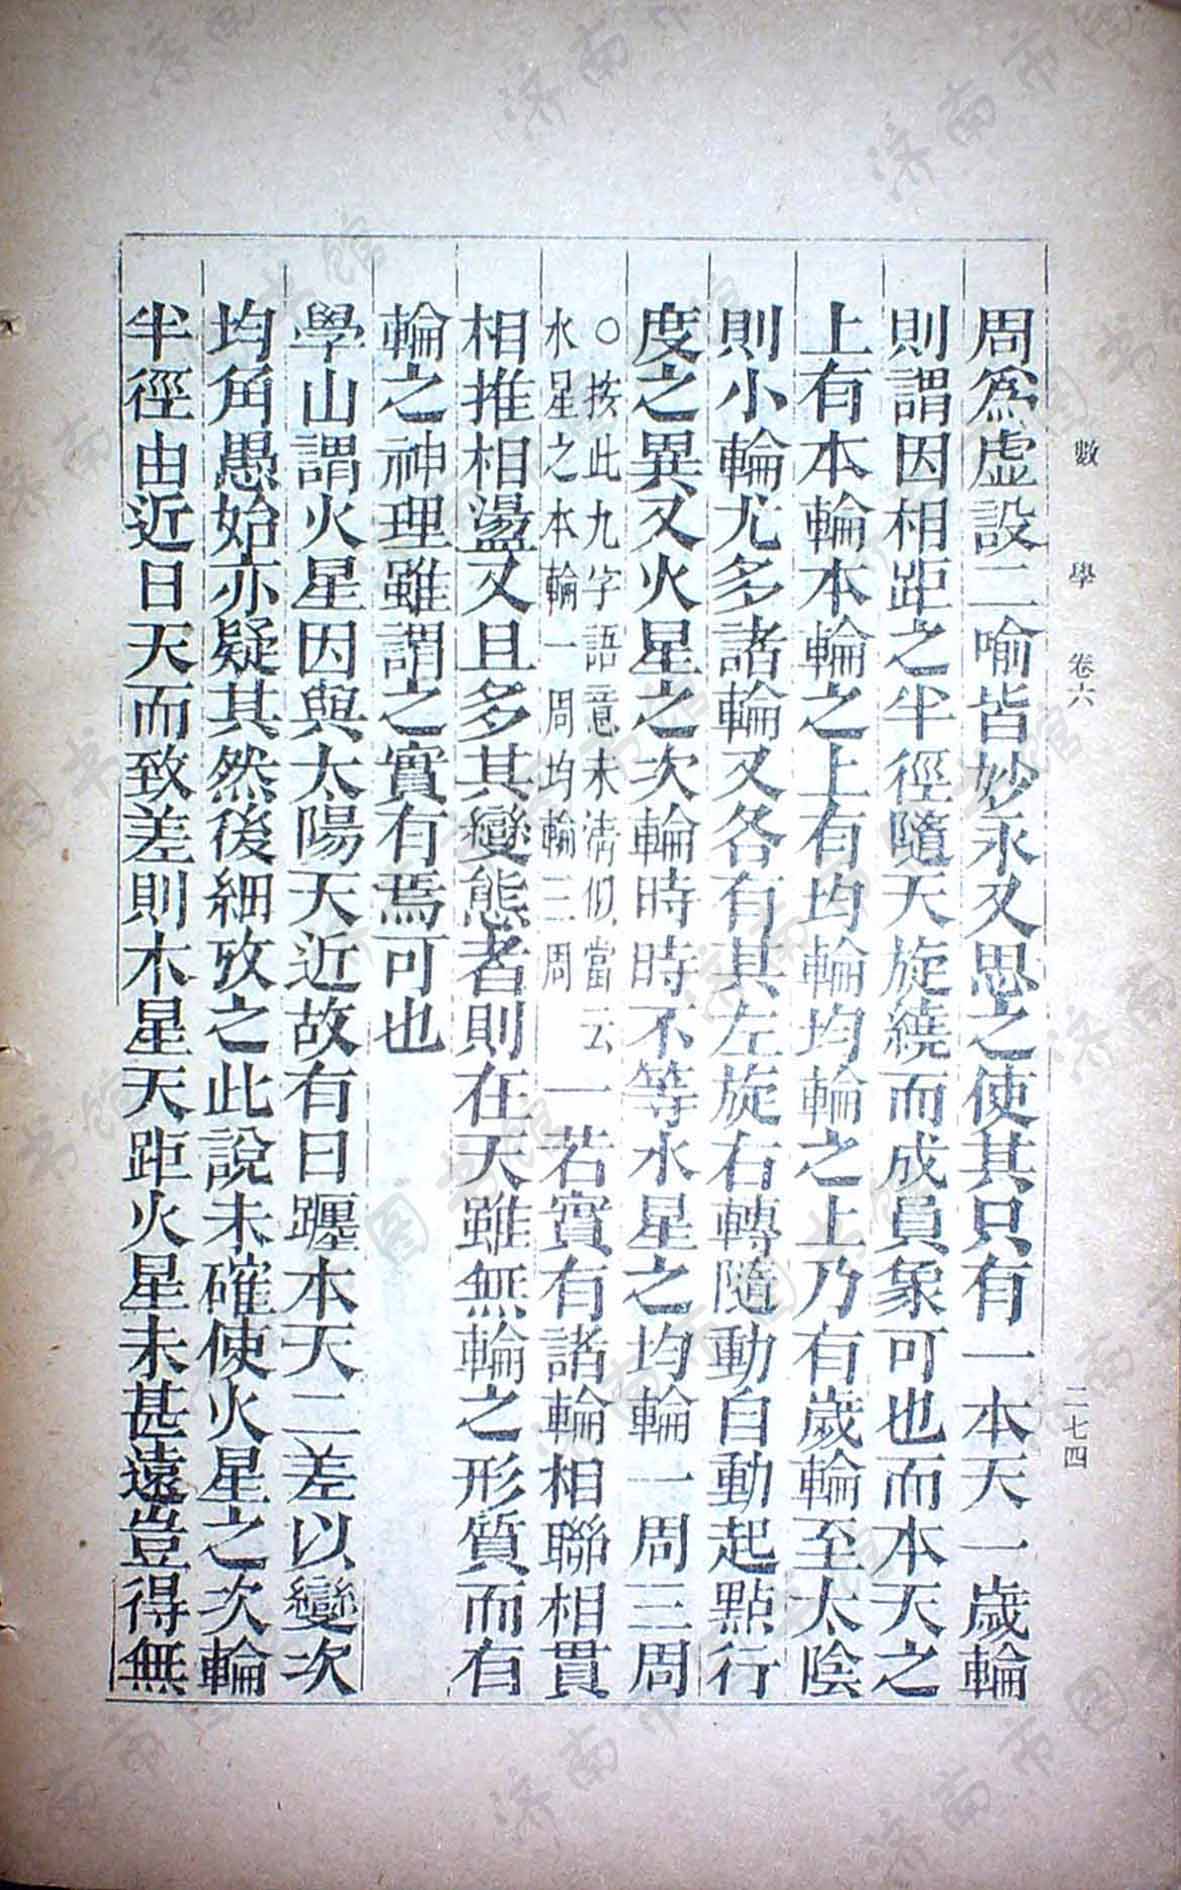 數 學 卷六 二七四
周為虛設二喻皆妙永又思之使其只有一本天一歲輪
則謂因相距之半徑隨天旋繞而成員象可也而本天之
上有本輪本輪之上有均輪均輪之上乃有歲輪至太陰
則小輪尤多諸輪又各有其左旋右轉隨動自動起點行
度之異又火星之次輪時時不等水星之均輪一周三周
○按此九字語意未清似當云
水星之本輪一周均輪三周
一若實有諸輪相聯相貫
相推相盪又且多其變態者則在天雖無輪之形質而有
輪之神理雖謂之實有焉可也
學山謂火星因與太陽天近故有日躔本天二差以變次
均角愚始亦疑其然後細攷之此說未確使火星之次輪
半徑由近日天而致差則木星天距火星未甚遠豈得無
济南市图书馆